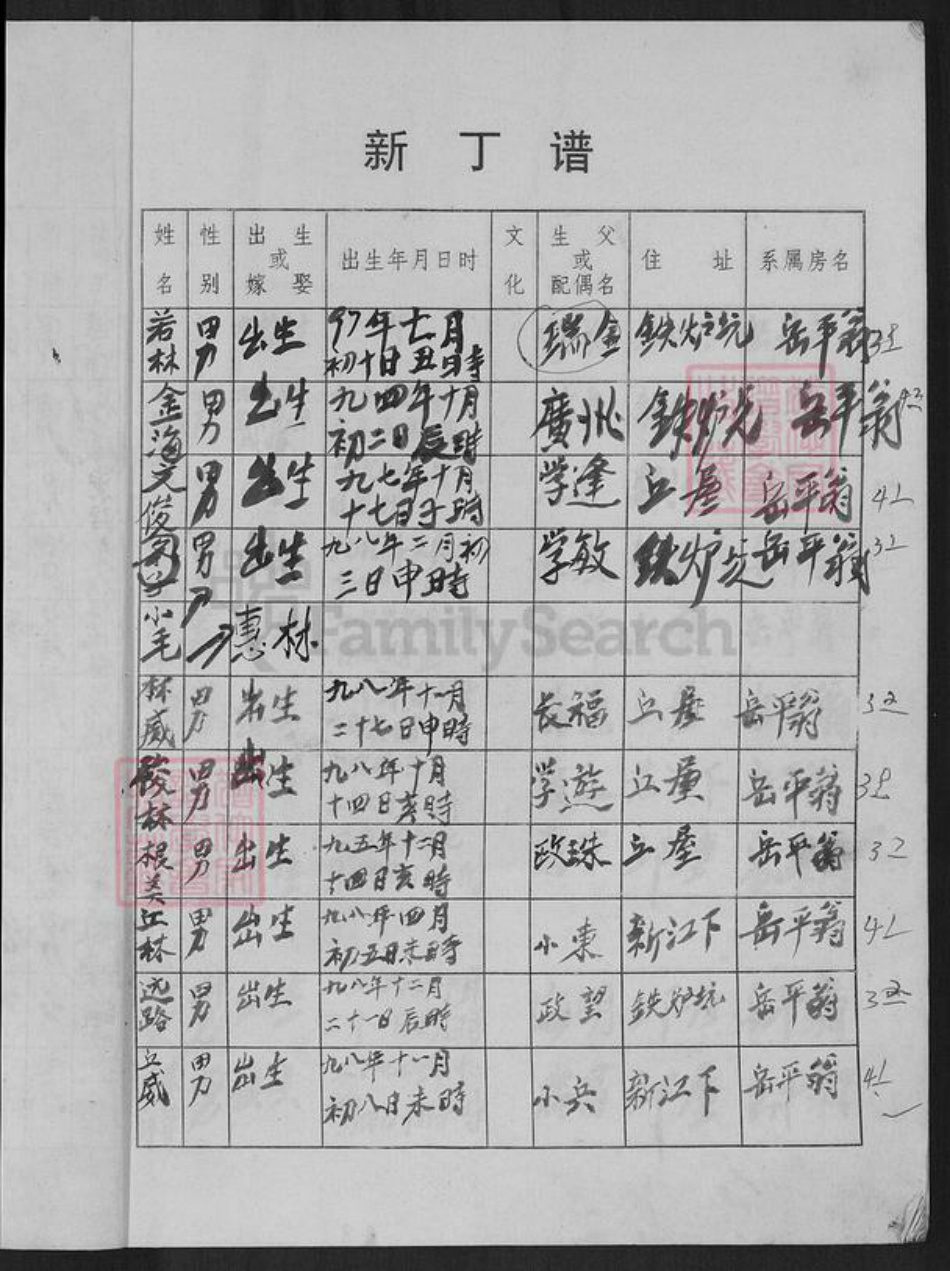 新丁谱
姓名 性别 出生或嫁娶 出生年月日时 文化 生父或配偶名 住址 系属房名
若林 男 出生 97年七月初十日丑日時 瑞金 鉄炉坑 岳平翁
金海 男 出生 九四年十月初二日辰時 廣州 鉄炉坑 岳平翁
文俊 男 出生 九七年十月十七日子時 学逢 丘屋 岳平翁 41
男 出生 九八年二月初三日申時 学敏 鉄炉 岳平翁
小毛 惠林
林威 男 出生 九八年十一月二十七日申時 长福 丘屋 岳平翁 32
俊林 男 出生 九八年十月十四日亥時 学遊 丘屋 岳平翁
根美 男 出生 九五年十二月十四日亥時 政珠 丘屋 岳平翁 32
江林 男 出生 九八年四月初五日未時 小東 新江下 岳平翁 41
远路 男 出生 九八年十二月二十一日辰時 政望 鉄炉坑 岳平翁 32
丘威 男 出生 九八年十一月初八日未時 小兵 新江下 岳平翁 41
FamilySearch